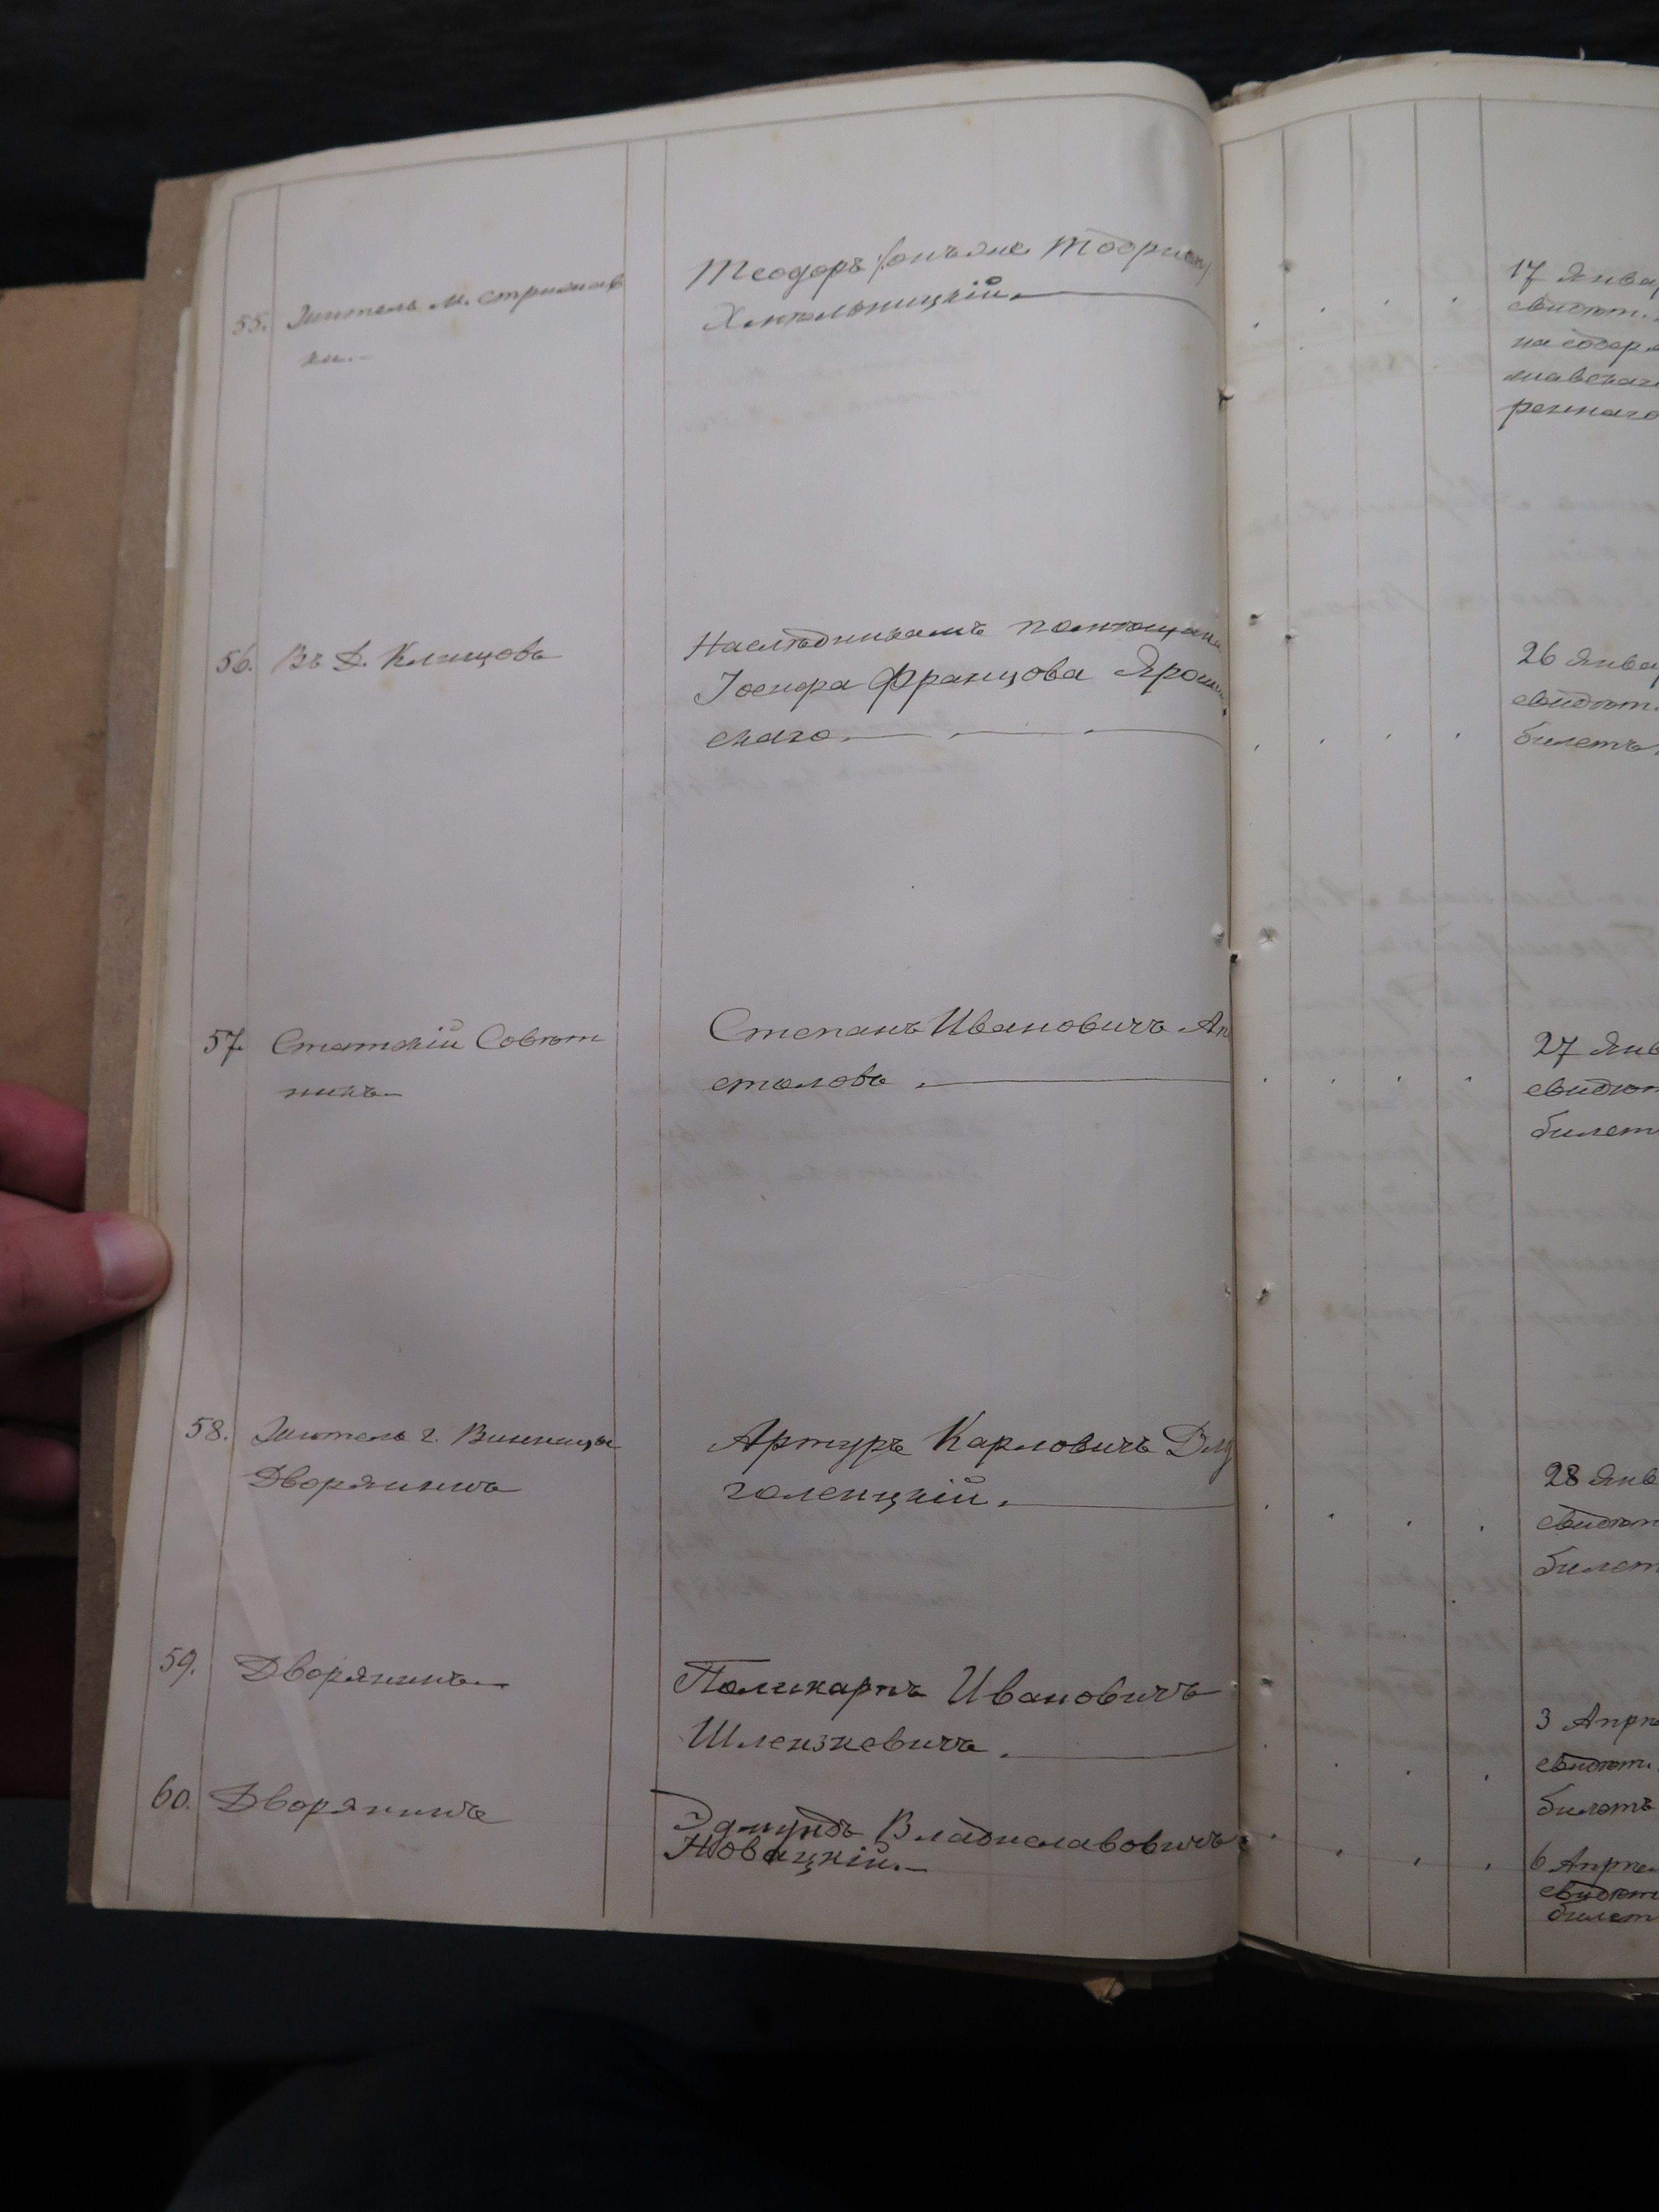 55. Житель м. Стрижав
ки.-
Теодоръ (онъ же Тодрис)
Хмельницкій.
17 Январ
свидѣт.
на содер
реннаго
56. Въ Д. Клищовъ
Наслѣдникамъ помѣщик
Іосифа Францова Ярош
скаго.
26 Январ
свидѣт.
билетъ
57. Статскій Совѣт
никъ
Степанъ Ивановичъ Ап
столовъ.
27 Янв
свидѣт
билет
58. Житель г. Винницы
Дворянинъ
Артуръ Карловичъ Длу
голенцкій.
28 Янв
свидѣт
билет
59. Дворянинъ
Поликарпъ Ивановичъ
Шлензкевичъ.
3 Апрѣ
свидѣт.
билетъ
60. Дворянинъ
Эдмундъ Владиславовичъ
Новицкій.-
6 Апрѣл
свидѣт
билет